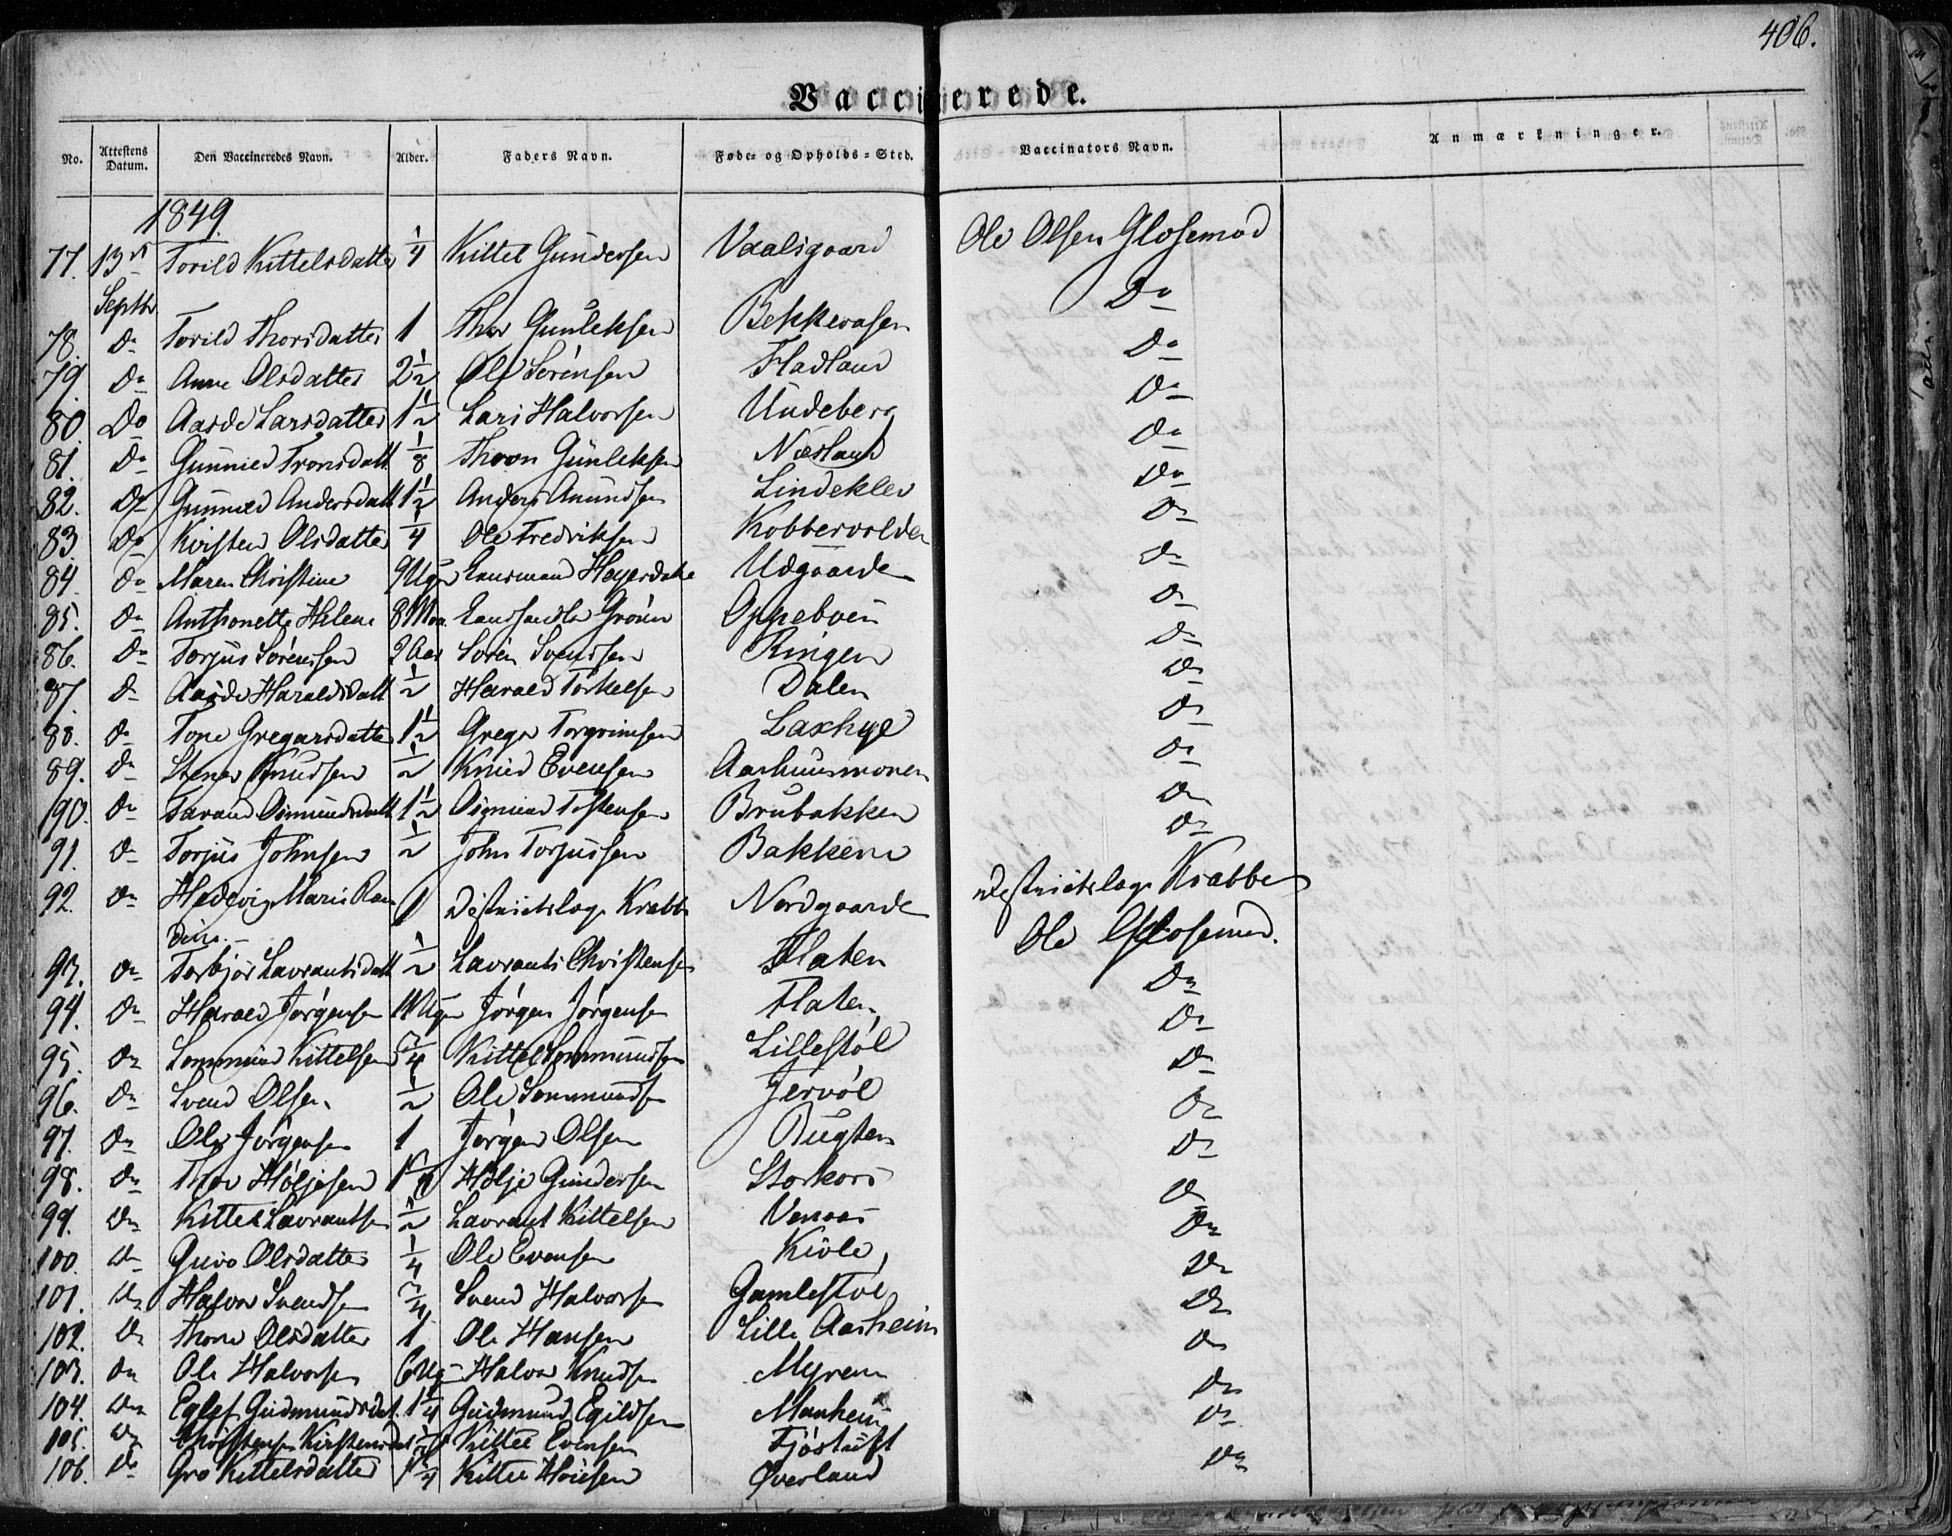 406.
Vaccinerede.
No. Attestens Datum. Den Vaccineredes Navn. Alder. Faders Navn. Føde- og Opholds-Sted. Vaccinators Navn. Anmærkninger.
1849.
77. 13de Septbr Torild Kittelsdatter 1/4 Kittel Gundersen Vaalsgaard Ole Olsen Glosemod
78. Do Torild Thorsdatter 1 Thor Gunleksen Bekkevasen Do
79. Do Anne Olsdatter 2 1/2 Ole Sørensen Fladland Do
80. Do Aasde Larsdatter 1 1/2 Lars Halvorsen Undeberg Do
81. Do Gunnild Tronsdatt 1/8 Thron Gunleksen Næsland Do
82. Do Gunnild Andersdatt 1 1/2 Anders Anundsen Lindeklev Do
83. Do Kirsten Olsdatter 1/4 Ole Fredriksen Kobbervolden Do
84. Do Maren Christine 9 Uger Lensmand Heyerdahl Udgaarde Do
85. Do Anthonette Helene 8 Mon. Landhandler Grøen Oppeboen Do
86. Do Torjus Sørensen 2 Aar Søren Svendsen Ringen Do
87. Do Aasde Haraldsdatt 1/2 Harald Torkelsen Dalen Do
88. Do Tone Gregarsdatter 1 1/2 Gregar Torgrimsen Laxhye Do
89. Do Stener Knudsen 1/2 Knud Evensen Aashuusmonen Do
90. Do Tarand Osmundsdatt 1 1/2 Osmund Tostensen Brubakken Do
91. Do Torjus Johnsen 1/2 John Torjussen Bakken Do
92. Do Hedevig Marie Randine. 1 Districtslæge Krabbe Nordgaarde Districtslæge Krabbe
93. Do Torbjør Lavrantsdatt 1/2 Lavrants Christensen Flaten Ole Glosemod.
94. Do Harald Jørgensen Uger Jørgen Jørgensen Flaten Do
95. Do Sommund Kittelsen 3/4 Kittel Sommundsen Lillestøl Do
96. Do Svend Olsen 1/2 Ole Sommundsen Jervøl Do
97. Do Ole Jørgensen 1 Jørgen Olsen Bugten Do
98. Do Thov Høljesen 1 Hølje Gundersen Storkors Do
99. Do Kittel Lavrantsen 1/2 Lavrant Kittelsen Venaas Do
100. Do Guro Olsdatter 1/4 Ole Evensen Kivle Do
101. Do Halvor Svendsen 3/4 Svend Halvorsen Gamlestøl Do
102. Do Thone Olsdatter 1 Ole Hansen Lille Aasheim Do
103. Do Ole Halvorsen 6 Ug Halvor Knudsen Myren Do
104. Do Gudmundsdat. 1 1/4 Gudmund Egildsen Manheim Do
105. Do Kittel Evensen Fjøstuft Do
106. Do Gro Kittelsdatter 1 1/4 Kittel Overland Do